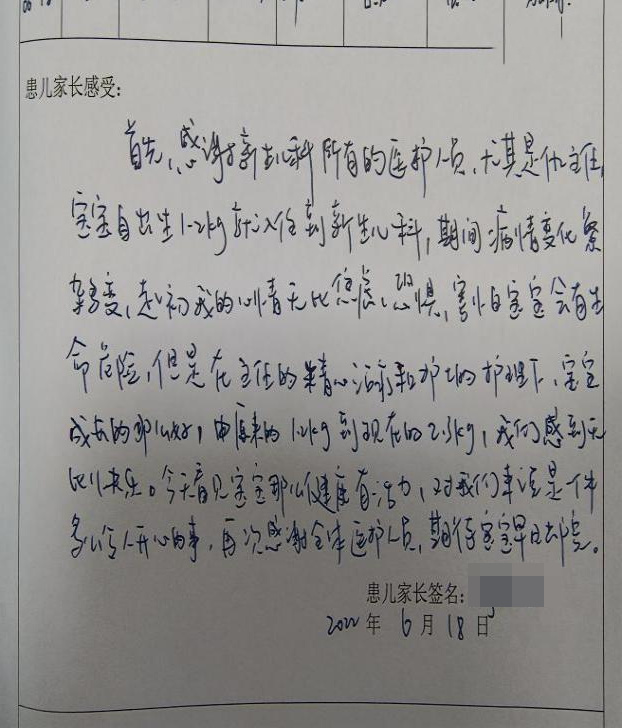 患儿家长感受：
首先，感谢新生儿科所有的医护人员，尤其是仇主任，
宝宝自出生1.2kg就入住到新生儿科，期间病情变化繁
变，起初我的心情无比焦虑、恐惧，害怕宝宝会有生
命危险，但是在主任的精心治疗和护士的护理下，宝宝
成长的那么好，由原来的1.2kg到现在的2.3kg，我们感到无
比快乐。今天看见宝宝那么健康有活力，对我们来说是一件
多么令人开心的事，再次感谢全体医护人员，期待宝宝早日出院。
患儿家长签名：
2022年 6月18日